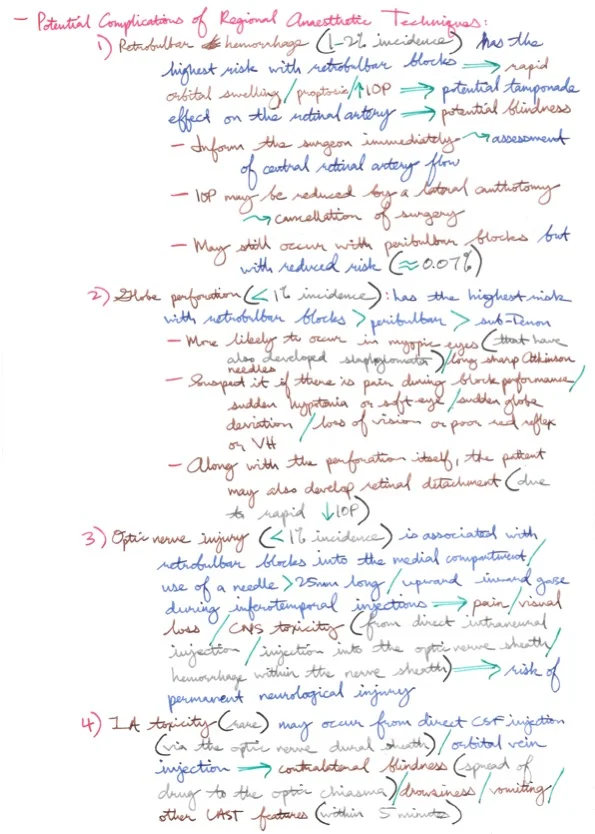 - Potential Complications of Regional Anaesthetic Techniques:
1) Retrobulbar hemorrhage (1-2% incidence) has the
highest risk with retrobulbar blocks ⇒ rapid
orbital swelling/proptosis/↑IOP ⇒ potential tamponade
effect on the retinal artery ⇒ potential blindness
- Inform the surgeon immediately ⇝ assessment
of central retinal artery flow
- IOP may be reduced by a lateral canthotomy
⇝ cancellation of surgery
- May still occur with peribulbar blocks but
with reduced risk (≈0.07%)
2) Globe perforation (<1% incidence): has the highest risk
with retrobulbar blocks > peribulbar > sub-Tenon
- More likely to occur in myopic eyes (that have
also developed staphylomata)/long sharp Atkinson
needles
- Suspect it if there is pain during block performance/
sudden hypotonia or soft eye/sudden globe
deviation/loss of vision or poor red reflex
or VH
- Along with the perforation itself, the patient
may also develop retinal detachment (due
to rapid ↓IOP)
3) Optic nerve injury (<1% incidence) is associated with
retrobulbar blocks into the medial compartment/
use of a needle >25mm long/upward inward gaze
during inferotemporal injections ⇒ pain/visual
loss/CNS toxicity (from direct intraneural
injection/injection into the optic nerve sheath/
hemorrhage within the nerve sheath) ⇒ risk of
permanent neurological injury
4) LA toxicity (rare) may occur from direct CSF injection
(via the optic nerve dural sheath)/orbital vein
injection ⇒ contralateral blindness (spread of
drug to the optic chiasma)/drowsiness/vomiting/
other LAST features (within 5 minutes)